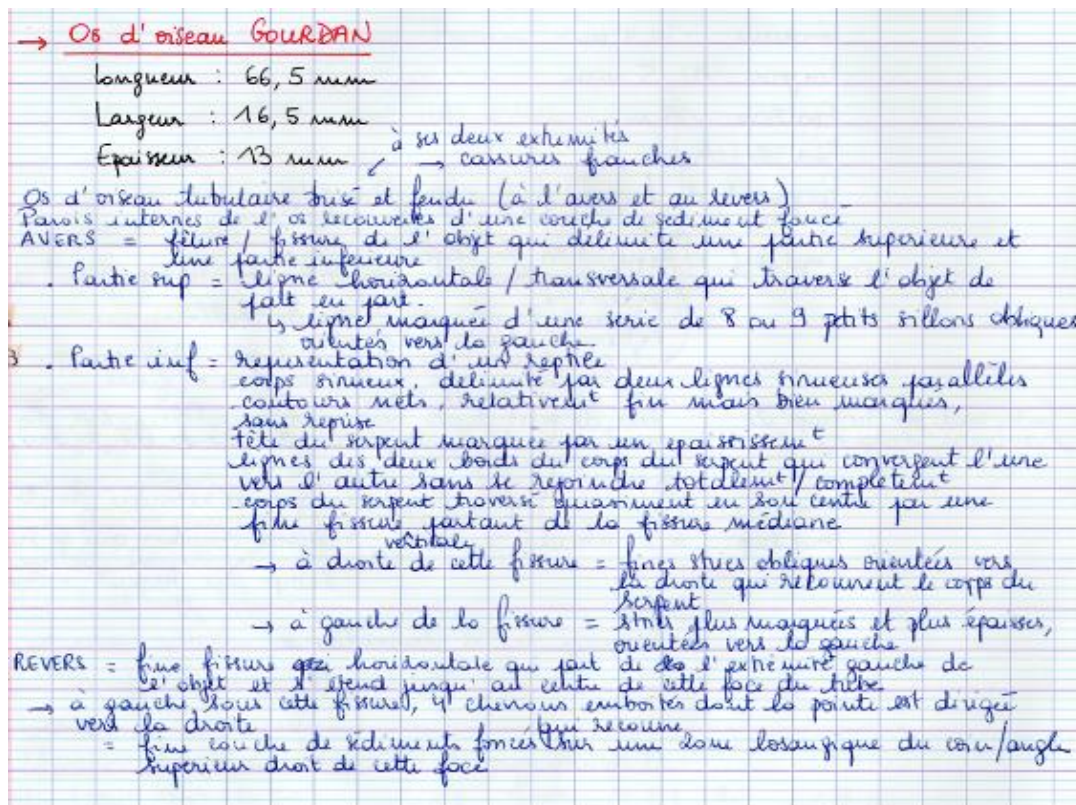 → Os d'oiseau GOURDAN
Longueur : 66,5 mm
Largeur : 16,5 mm
Epaisseur : 13 mm
à ses deux extremités
→ cassures franches
Os d'oiseau tubulaire brisé et fendu (à l'avers et au revers)
Parois internes de l'os recouvertes d'une couche de sediment foncé
AVERS = fêlure / fissure de l'objet qui délimite une partie superieure et
une partie inferieure
. Partie sup = ligne horizontale / transversale qui traverse l'objet de
part en part.
↳ ligne marquée d'une serie de 8 ou 9 petits sillons obliques
orientés vers la gauche
. Partie inf = representation d'un reptile
corps sinueux, delimité par deux lignes sinueuses parallèles
contours nets, relativemt fin mais bien marqués,
sans reprise
tête du serpent marquée par un epaississemt
lignes des deux bords du corps du serpent qui convergent l'une
vers l'autre sans se rejoindre totalemt / completemt
corps du serpent traversé quasiment en son centre par une
fine fissure partant de la fissure médiane
verticale
→ à droite de cette fissure = fines stries obliques orientées vers
la droite qui recouvrent le corps du
serpent
→ à gauche de la fissure = stries plus marquées et plus épaisses,
orientées vers la gauche
REVERS = fine fissure horizontale qui part de l'extrémité gauche de
l'objet et s'étend jusqu'au centre de cette face du tube
→ à gauche, sous cette fissure, 4 chevrons emboités dont la pointe est dirigée
vers la droite
qui recouvre
= fine couche de sédiments foncés sur une zone losangique du coin/angle
superieur droit de cette face